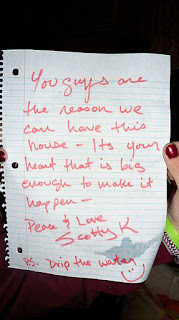 You guys are
the reason we
can have this
house - Its your
heart that is big
enough to make it
happen -
Peace & Love
Scotty K
PS. Drip the water